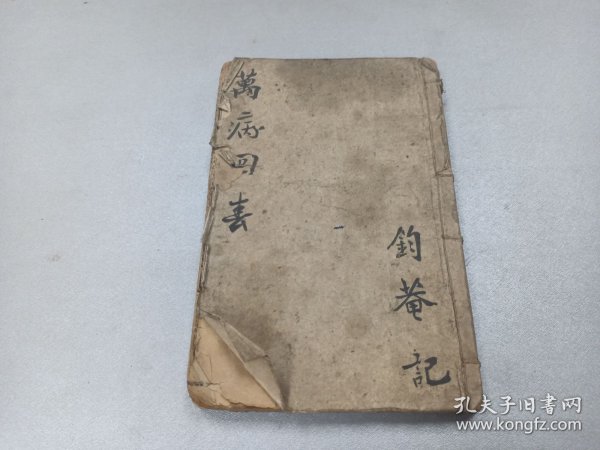 萬病回春
鈞菴記
孔夫子旧书网
www.kongfz.com